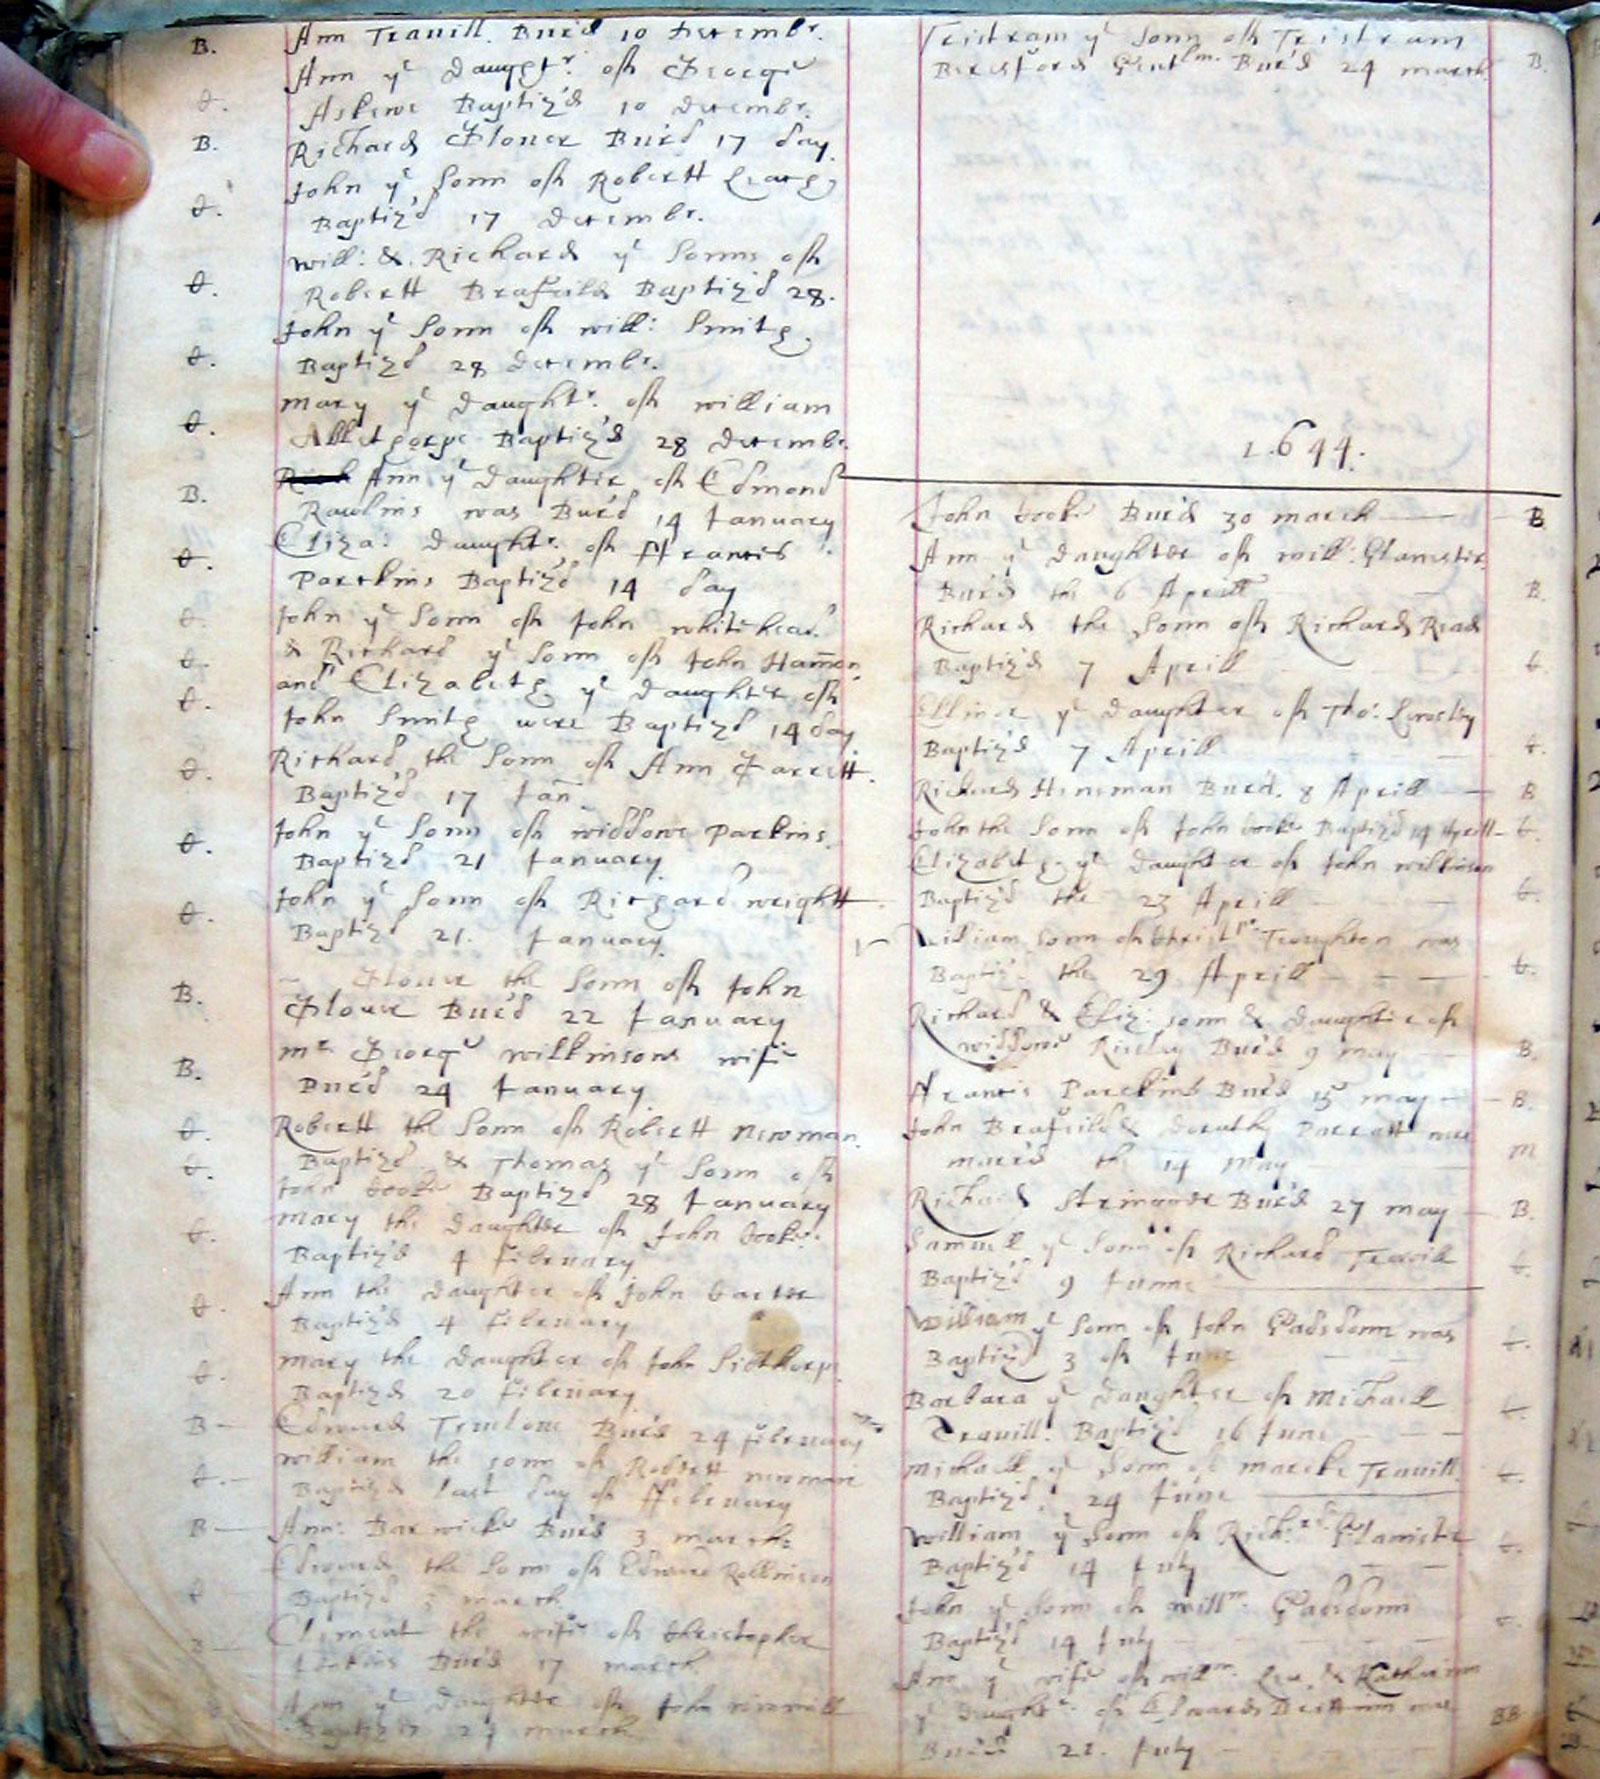 B. Ann Travill. Bur'd 10 Decembr.
Ann yᵉ Daughtʳ. off George
C. Askewe Baptiz'd 10 Decembr.
B. Richard Glover Bur'd 17 day
John yᵉ Sonn off Robertt
C. Baptiz'd 17 Decembr.
Will: & Richard yᵉ Sonns off
C. Robertt Brafeild Baptiz'd 28.
John yᵉ Sonn off Will: Smith
C. Baptiz'd 28 Decembr.
Mary yᵉ Daughtʳ. off William
C. Baptiz'd 28 Decembr
Ann yᵉ Daughter off Edmond
B. Rawlins was Bur'd 14 January
Eliza: Daughtʳ. off ffrancis
C. Parckins Baptiz'd 14 day
C. John yᵉ Sonn off John Whitehead
C. & Richard yᵉ Sonn off John Hamon
C. and Elizabeth yᵉ Daughter off
John Smith were Baptiz'd 14 day
C. Richard the Sonn off Ann Garrett
Baptiz'd 17 Jan
C. John yᵉ Sonn off Widdowe Parkins
Baptiz'd 21 January
C. John yᵉ Sonn off Richard Wrightt
Baptiz'd 21. January
B. Glover the Sonn off John
Glover Bur'd 22 January
Mʳ George Wilkinsons wife
B. Bur'd 24 January
C. Robertt the Sonn off Robertt Newman
C. Baptiz'd & Thomas yᵉ Sonn off
John Cooke Baptiz'd 28 January
C. Mary the Daughter off John Cooke
Baptiz'd 4 February
C. Ann the Daughter off John Carter
Baptiz'd 4 February
C. Mary the Daughter off John Sibthorpe
Baptiz'd 20 February
B Edward Bur'd 24 February
William the sonn off Robertt Newman
C. Baptiz'd last day off ffebruary
B Ann: Barwicke Bur'd 3 march
Edward the Sonn off Edward Rollinson
C Baptiz'd 3 march
Clement the wife off Christopher
B Bur'd 17 march
Ann yᵉ Daughter off John
Baptiz'd 24 march
Tristram yᵉ Sonn off Tristram
Beresford Gentlm. Bur'd 24 march B.
1644.
John Cooke Bur'd 30 march B
Ann yᵉ Daughter off Will: Glamister
Bur'd the 6 Aprill B.
Richard the Sonn off Richard Read
Baptiz'd 7 Aprill C.
Ellinor yᵉ Daughter off Tho:
Baptiz'd 7 Aprill C.
Richard Hensman Bur'd. 8 Aprill B
John the Sonn off John Cooke Baptiz'd 14 Aprill C.
Elizabeth yᵉ Daughter off John Wilkinson
Baptiz'd the 23 Aprill C.
William Sonn off Christᵖʳ. Troughton was
Baptiz. the 29 Aprill C.
Richard & Eliz: sonn & Daughter off
Widdowe Bur'd 9 may B.
ffrancis Parckins Bur'd 15 may B.
John Brafeild & Dorothy Parratt were
marr'd the 14 May M
Richard Bur'd 27 may B.
Samuell yᵉ Sonn off Richard Travill
Baptiz'd 9 Junne C.
William yᵉ Sonn off John Gadsdonn was
Baptiz'd 3 off June C.
Barbara yᵉ Daughter off Michaell
Travill. Baptiz'd 16 June C.
Michaell yᵉ Sonn off Marcke Travill
Baptiz'd. 24 June C.
William yᵉ Sonn off Rich: Glamister
Baptiz'd 14 July C.
John yᵉ Sonn off Willᵐ. Gadsdonn
Baptiz'd 14 July C.
Ann yᵉ wife off Willᵐ. Lee & Katherinn
yᵉ Daughtʳ. off Edward was
Bur'd 21. July BB.